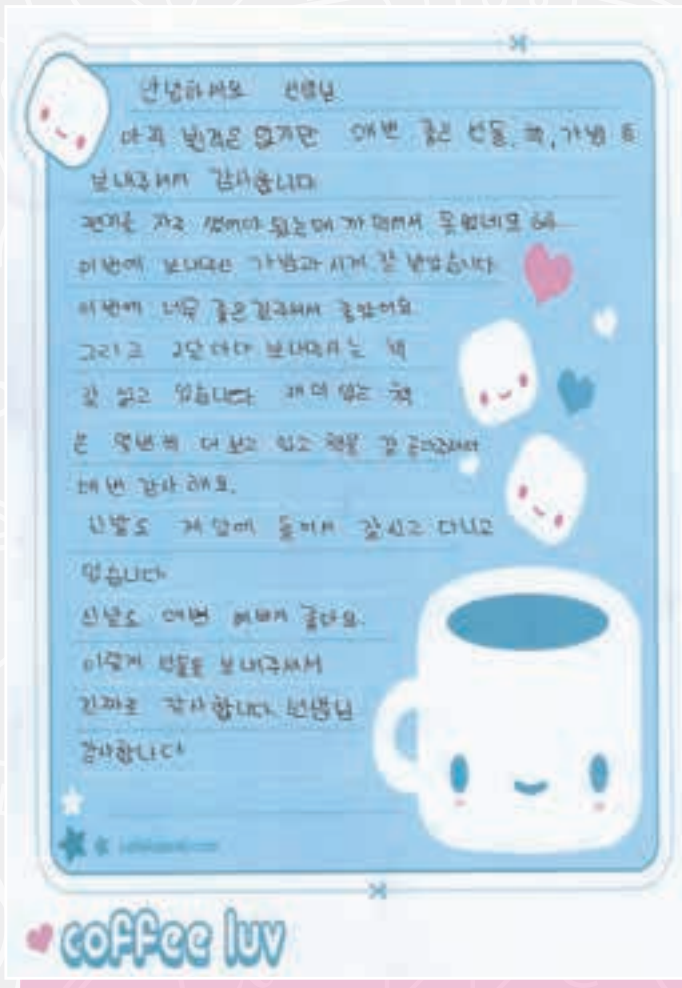 안녕하세요 선생님
아직 번적은 없지만 매번 좋은 선물, 책, 가방 등
보내주셔서 감사합니다
편지를 자주 썼어야 됐는데 까먹어서 못썼네요
이번에 보내주신 가방과 시계 잘 받았습니다
이번에 너무 좋은걸주셔서 좋았어요
그리고 2달마다 보내주시는 책
잘 읽고 있습니다 재미 있는 책
은 몇번씩 더 보고 있고 책을 잘 골라주셔서
매번 감사해요.
신발도 제 맘에 들어서 잘신고 다니고
있습니다
신발도 매번 예뻐서 좋아요.
이렇게 선물을 보내주셔서
진짜로 감사합니다 선생님
감사합니다
coffee luv